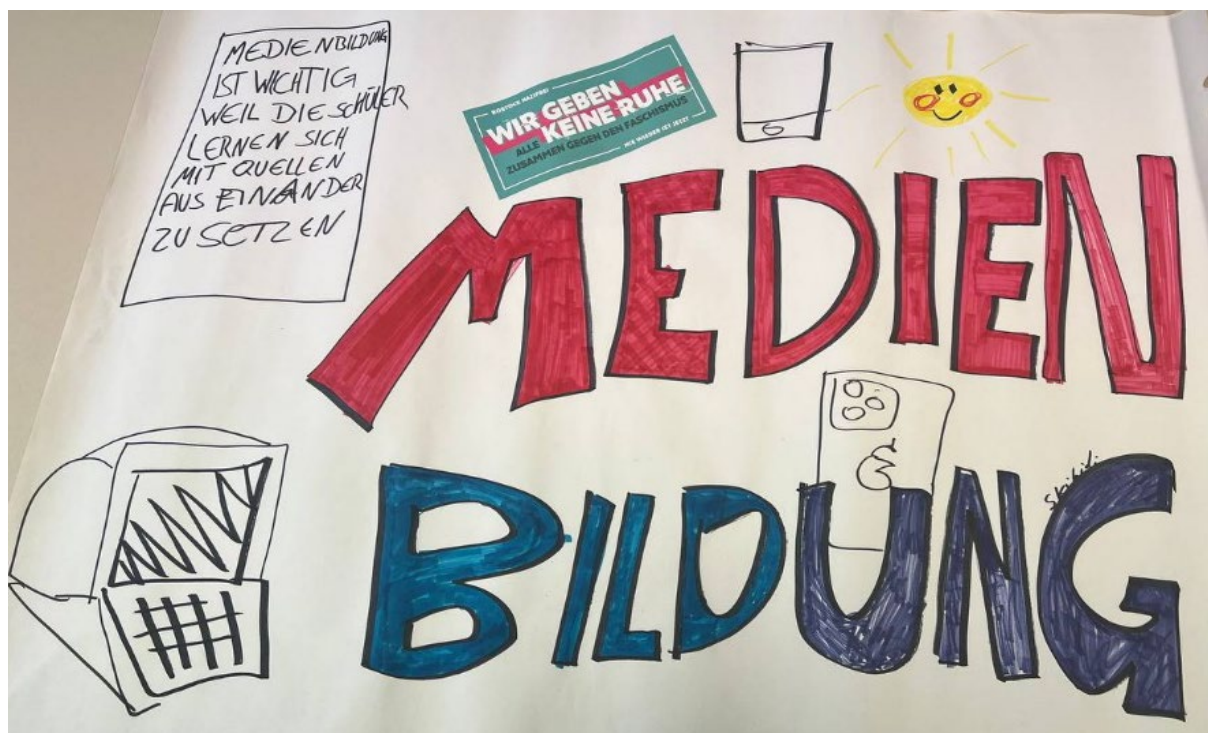 MEDIENBILDUNG
IST WICHTIG
WEIL DIE SCHÜLER
LERNEN SICH
MIT QUELLEN
AUS EINANDER
ZU SETZEN
ROSTOCK NAZIFREI
WIR GEBEN
KEINE RUHE
ALLE
ZUSAMMEN GEGEN DEN FASCHISMUS
NIE WIEDER IST JETZT
MEDIEN
BILDUNG
Skibidi